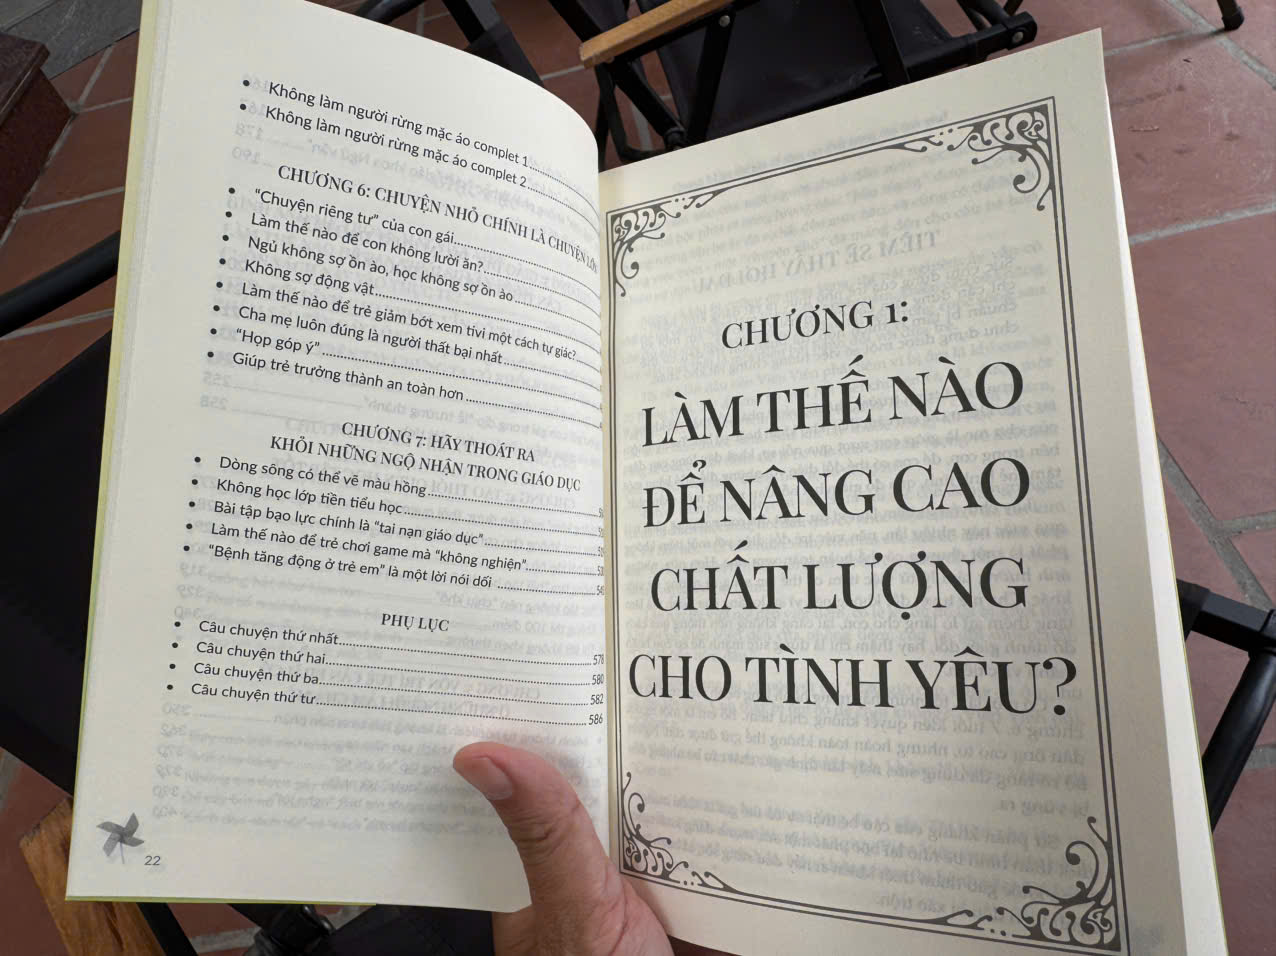 Không làm người rừng mặc áo complet 1
Không làm người rừng mặc áo complet 2
CHƯƠNG 6: CHUYỆN NHỎ CHÍNH LÀ CHUYỆN LỚN
“Chuyện riêng tư” của con gái
Làm thế nào để con không lười ăn?
Ngủ không sợ ồn ào, học không sợ ồn ào
Không sợ động vật
Làm thế nào để trẻ giảm bớt xem tivi một cách tự giác?
Cha mẹ luôn đúng là người thất bại nhất
“Họp góp ý”
Giúp trẻ trưởng thành an toàn hơn
CHƯƠNG 7: HÃY THOÁT RA
KHỎI NHỮNG NGỘ NHẬN TRONG GIÁO DỤC
Dòng sông có thể vẽ màu hồng
Không học lớp tiền tiểu học
Bài tập bạo lực chính là “tai nạn giáo dục”
Làm thế nào để trẻ chơi game mà “không nghiện”
“Bệnh tăng động ở trẻ em” là một lời nói dối
PHỤ LỤC
Câu chuyện thứ nhất 578
Câu chuyện thứ hai 580
Câu chuyện thứ ba 582
Câu chuyện thứ tư 586
22
CHƯƠNG 1:
LÀM THẾ NÀO
ĐỂ NÂNG CAO
CHẤT LƯỢNG
CHO TÌNH YÊU?